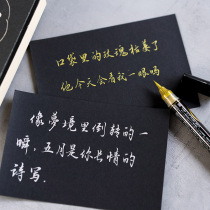 口袋里的玫瑰枯萎了
他今天会看我一眼吗
像夢境里倒转的一
瞬，五月是你共情的
诗写.